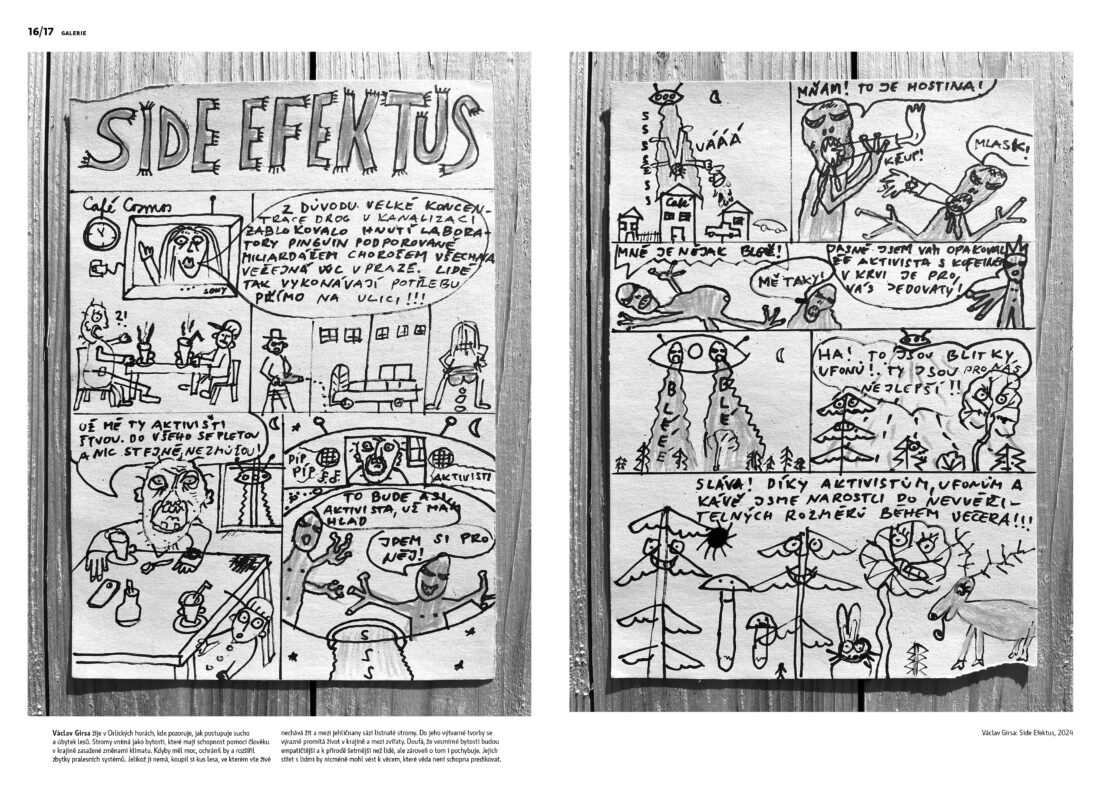 16/17 GALERIE
SIDE EFEKTUS
Café Cosmos
Z DŮVODU VELKÉ KONCEN-
TRACE DROG V KANALIZACI
ZABLOKOVALO HNUTÍ LABORA-
TORY PINGUIN PODPOROVANÉ
MILIARDÁŘEM CHOROŠEM VŠECHNA
VEŘEJNÁ WC V PRAZE. LIDÉ
TAK VYKONÁVAJÍ POTŘEBU
PŘÍMO NA ULICI!!!
SONY
?!
UŽ MĚ TY AKTIVISTI
ŠTVOU. DO VŠEHO SE PLETOU
A NIC STEJNĚ NEZMŮŽOU!
PÍP
PÍP
AKTIVISTI
TO BUDE ASI
AKTIVISTA, UŽ MÁM
HLAD
JDEM SI PRO
NĚJ!
S
S
S
S
S
S
S
E
S
S
VÁÁÁ
Café
MŇAM! TO JE HOSTINA!
KŘUP!
MLASK!
MNĚ JE NĚJAK BLBĚ!
MĚ TAKY!
JASNĚ JSEM VÁM OPAKOVAL
ŽE AKTIVISTA S KOFEINEM
V KRVI JE PRO
VÁS JEDOVATÝ!
BLÉÉÉ
BLÉ
HA! TO JSOU BLITKY
UFONŮ! TY JSOU PRO NÁS
NEJLEPŠÍ!!
SLÁVA! DÍKY AKTIVISTŮM, UFONŮM A
KÁVĚ JSME NAROSTLI DO NEUVĚŘI-
TELNÝCH ROZMĚRŮ BĚHEM VEČERA!!!
Václav Girsa žije v Orlických horách, kde pozoruje, jak postupuje sucho
a úbytek lesů. Stromy vnímá jako bytosti, které mají schopnost pomoci člověku
v krajině zasažené změnami klimatu. Kdyby měl moc, ochránil by a rozšířil
zbytky pralesních systémů. Jelikož ji nemá, koupil si kus lesa, ve kterém vše živé
nechává žít a mezi jehličnany sází listnaté stromy. Do jeho výtvarné tvorby se
výrazně promítá život v krajině a mezi zvířaty. Doufá, že vesmírné bytosti budou
empatičtější a k přírodě šetrnější než lidé, ale zároveň o tom i pochybuje. Jejich
střet s lidmi by nicméně mohl vést k věcem, které věda není schopna predikovat.
Václav Girsa: Side Efektus, 2024